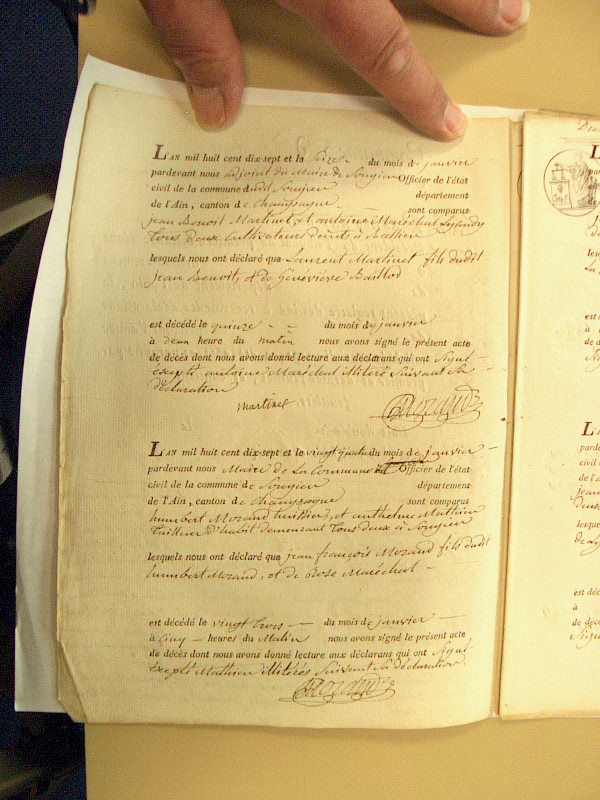 L'AN mil huit cent dix-sept et le Seize du mois de janvier
pardevant nous adjoint du Maire de Songieu Officier de l'état
civil de la commune dudit Songieu département
de l'Ain, canton de Champagne sont comparus
jean Benoit Martinet, et antoine Maréchal
tous deux Cultivateurs à
lesquels nous ont déclaré que Laurent Martinet fils dudit
jean Benoit, et de Geneviève Baillod
est décédé le quinze du mois de janvier
à deux heure du matin nous avons signé le présent acte
de décès dont nous avons donné lecture aux déclarans qui ont Signé
excepté antoine Maréchal illitéré Suivant Sa
déclaration
martinet
L'AN mil huit cent dix-sept et le vingt quatre du mois de janvier
pardevant nous Maire de La Commune Officier de l'état
civil de la commune de Songieu département
de l'Ain, canton de Champagne sont comparus
humbert Morand huissier, et anthelme Mathieu
tailleur d'habit demeurant tous deux à Songieu
lesquels nous ont déclaré que jean françois Morand fils dudit
humbert Morand, et de Rose Maréchal
est décédé le vingt trois du mois de janvier
à Cinq heures du Matin nous avons signé le présent acte
de décès dont nous avons donné lecture aux déclarans qui ont Signé
Excepté Mathieu illitéré Suivant Sa déclaration.